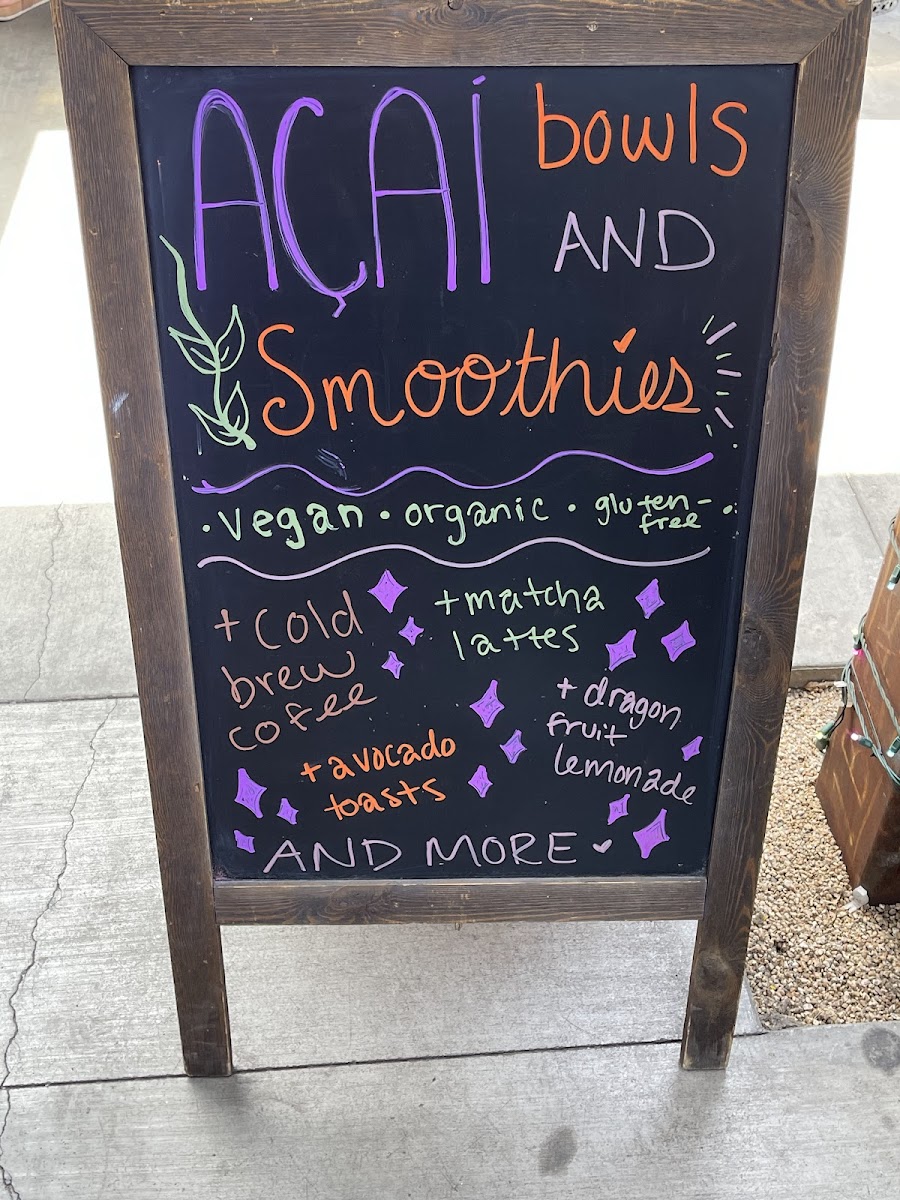 AÇAÍ bowls
AND
Smoothies
· vegan · organic · gluten-
free ·
+ cold
brew
cofee
+ matcha
lattes
+ dragon
fruit
lemonade
+ avocado
toasts
AND MORE